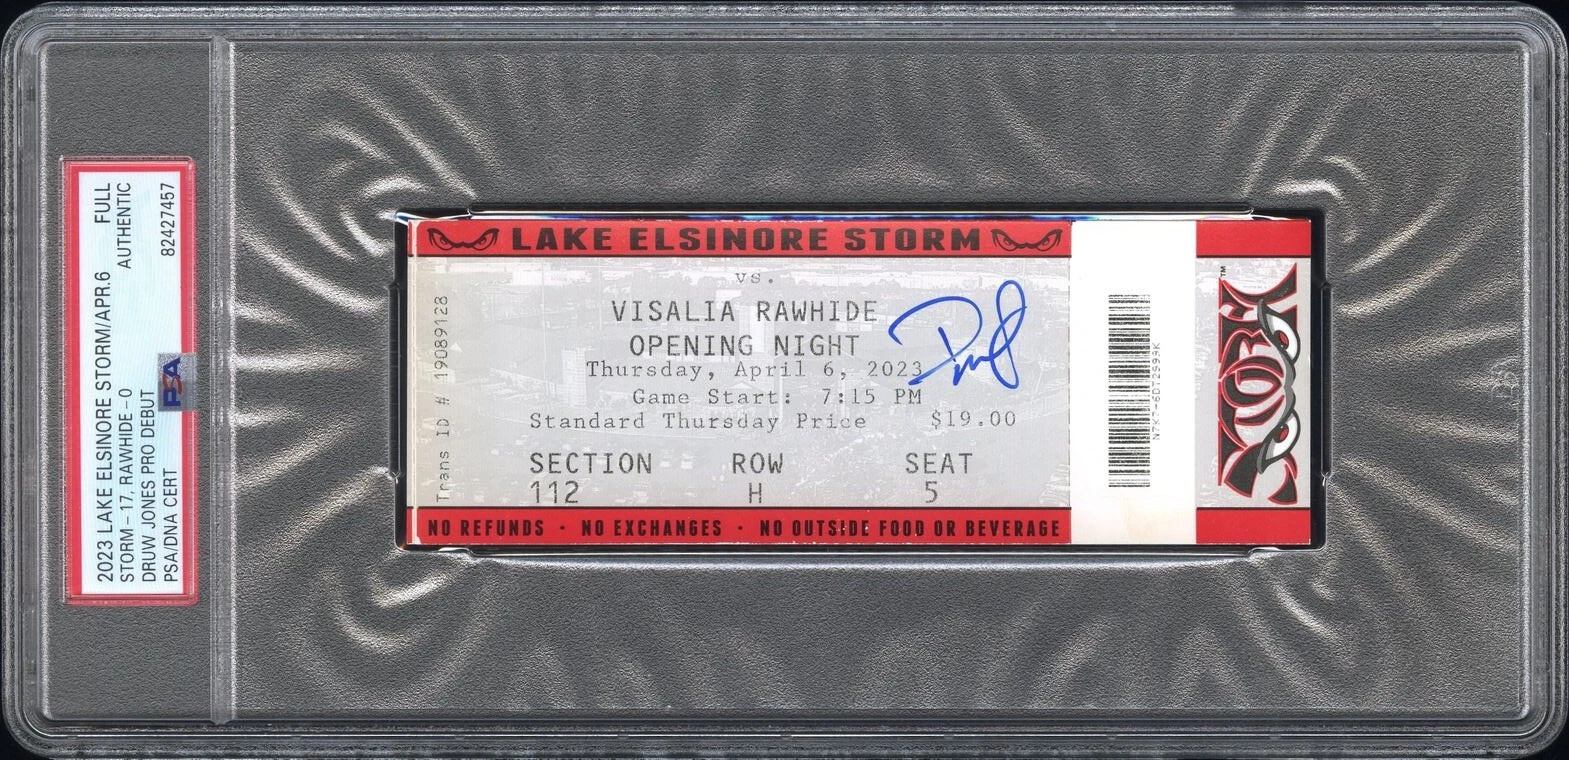 2023 LAKE ELSINORE STORM/APR.6 FULL
STORM-17, RAWHIDE-0 AUTHENTIC
DRUW JONES PRO DEBUT
PSA/DNA CERT 82427457
PSA
LAKE ELSINORE STORM
Trans ID # 19089128
vs.
VISALIA RAWHIDE
OPENING NIGHT
Thursday, April 6, 2023
Game Start: 7:15 PM
Standard Thursday Price $19.00
SECTION ROW SEAT
112 H 5
NO REFUNDS · NO EXCHANGES · NO OUTSIDE FOOD OR BEVERAGE
STORM
TM